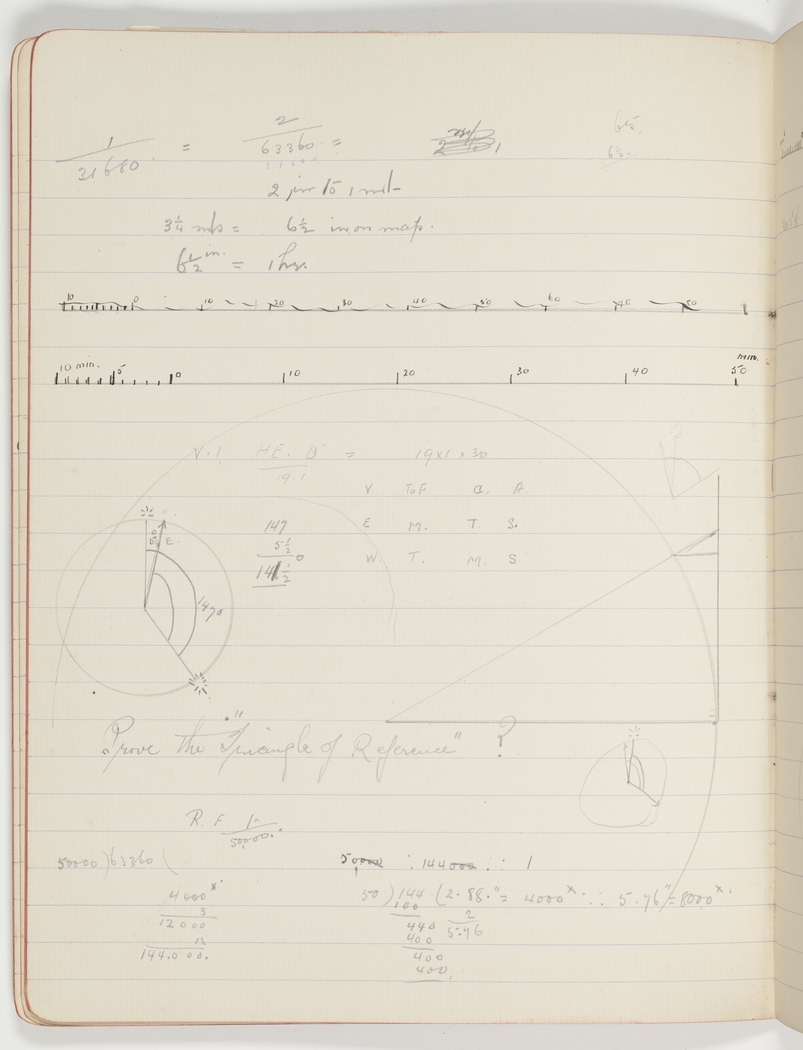 1/31680 = 2/63360 =
31680
2 in to 1 mil-
3 1/4 mls = 6 1/2 in on map.
6 1/2 in. = 1 hr.
10 0 10 20 30 40 50 60 40 80
10 min. 5 0 10 20 30 40 50 min.
V.I HE. D = 19 x 1 x 30
19.1
V. T of G. A.
147
E M. T. S.
5 1/2 0
W. T. M. S
141 1/2
E.
147o
Prove the "Triangle of Reference" ?
R. F 1/50000.
50000 ) 63360 (
50000 : 144000 :: 1
4000x
3
12000
12
144.000.
50 ) 144 ( 2.88." = 4000x :: 5.76" = 8000x
100
440 2
400 5.76
400
400.